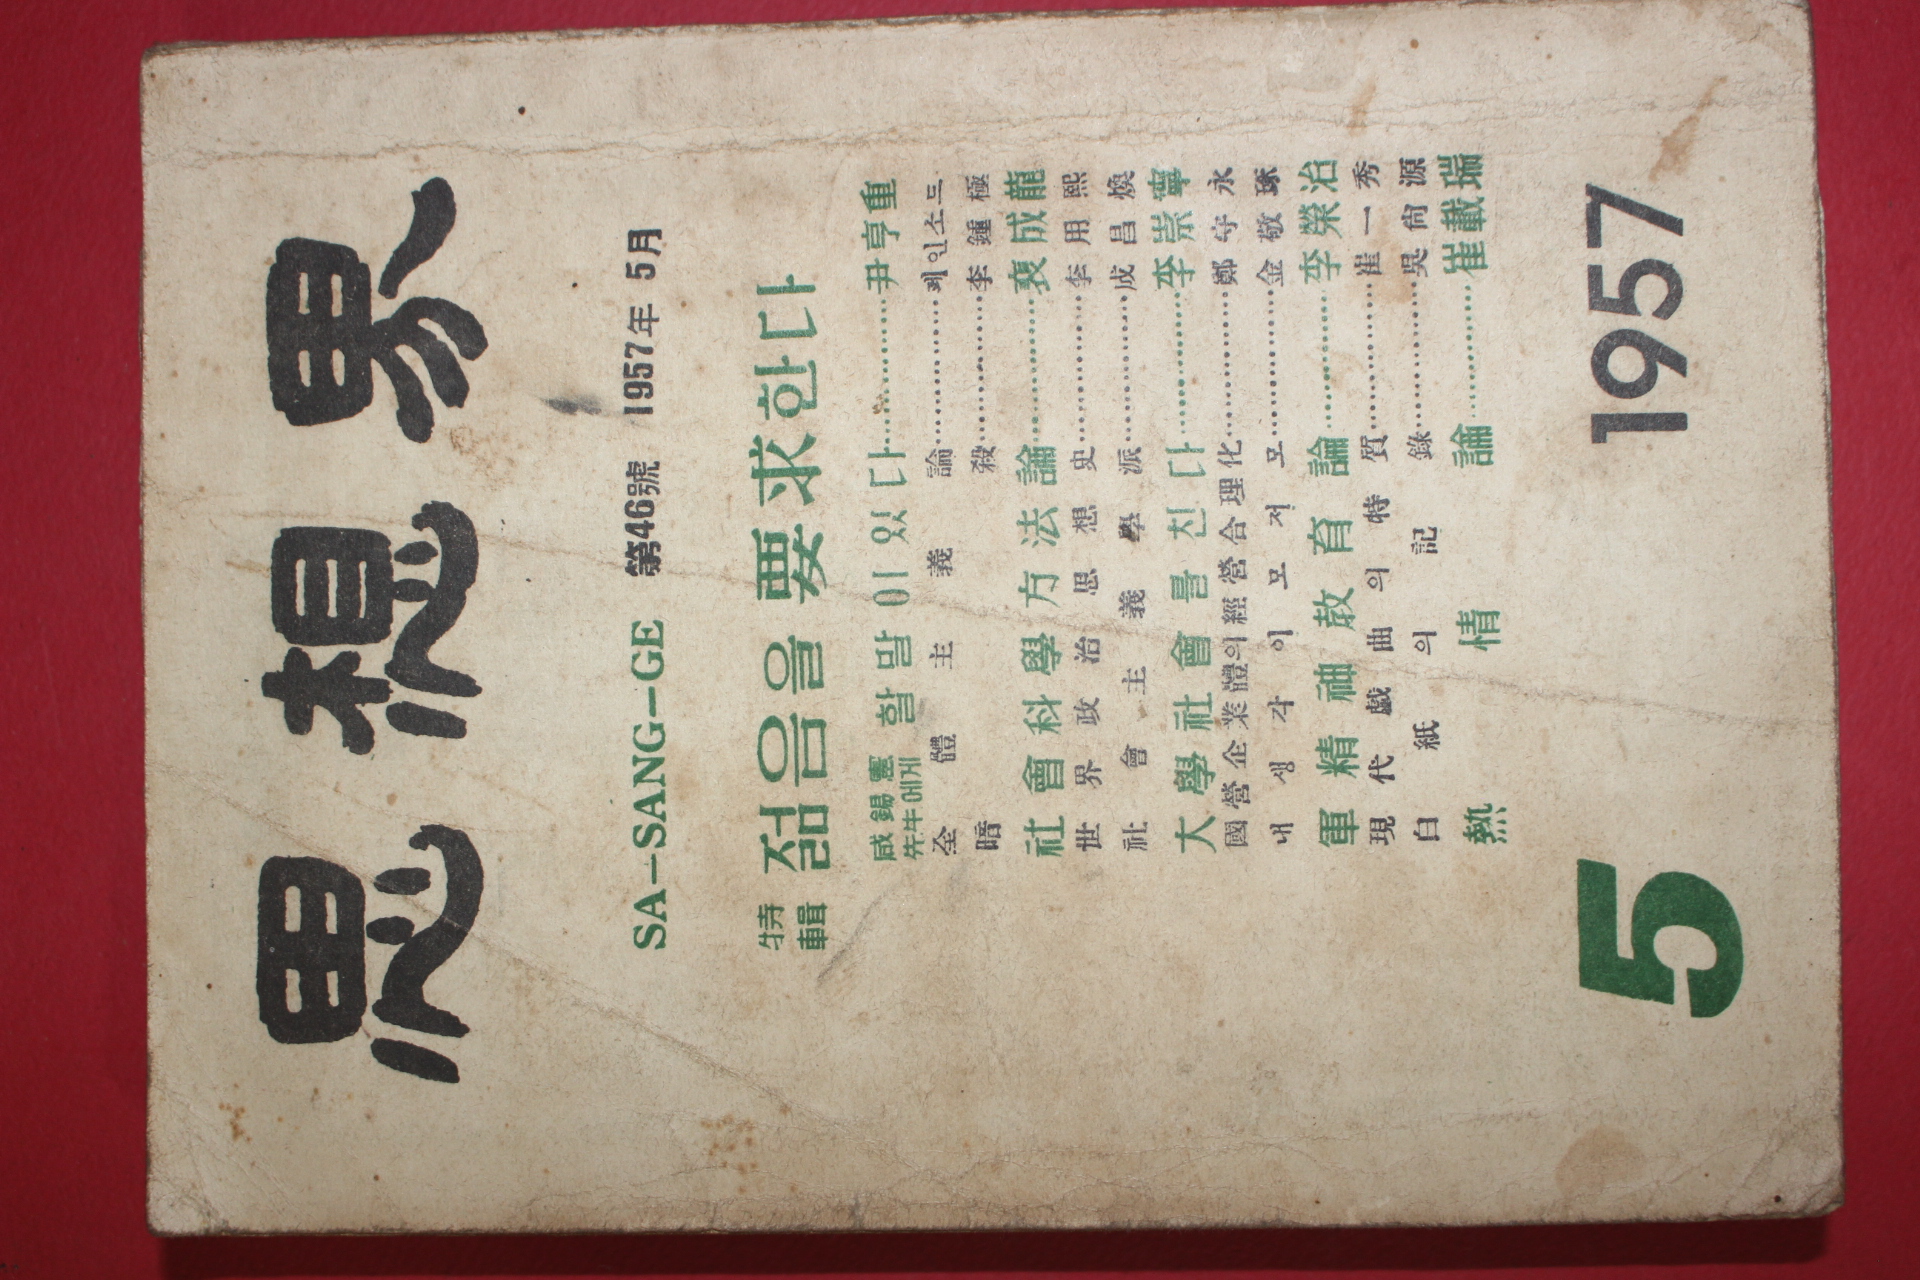 思想界
SA-SANG-GE 第46號 1957年 5月
特輯 젊음을 要求한다
咸錫憲先生에게 할 말이 있다……尹亨重
全體主義論……페인소드
暗殺……李鍾極
社會科學方法論……裵成龍
世界政治思想史……李用熙
社會主義學派……成昌煥
大學社會를 친다……李崇寧
國營企業體의 經營合理化……鄭守永
내 생각 이모저모……金敬琢
軍精神敎育論……李榮治
現代戱曲의 特質……崔一秀
白紙의 記錄……吳尙源
熱情論……崔載瑞
5 1957